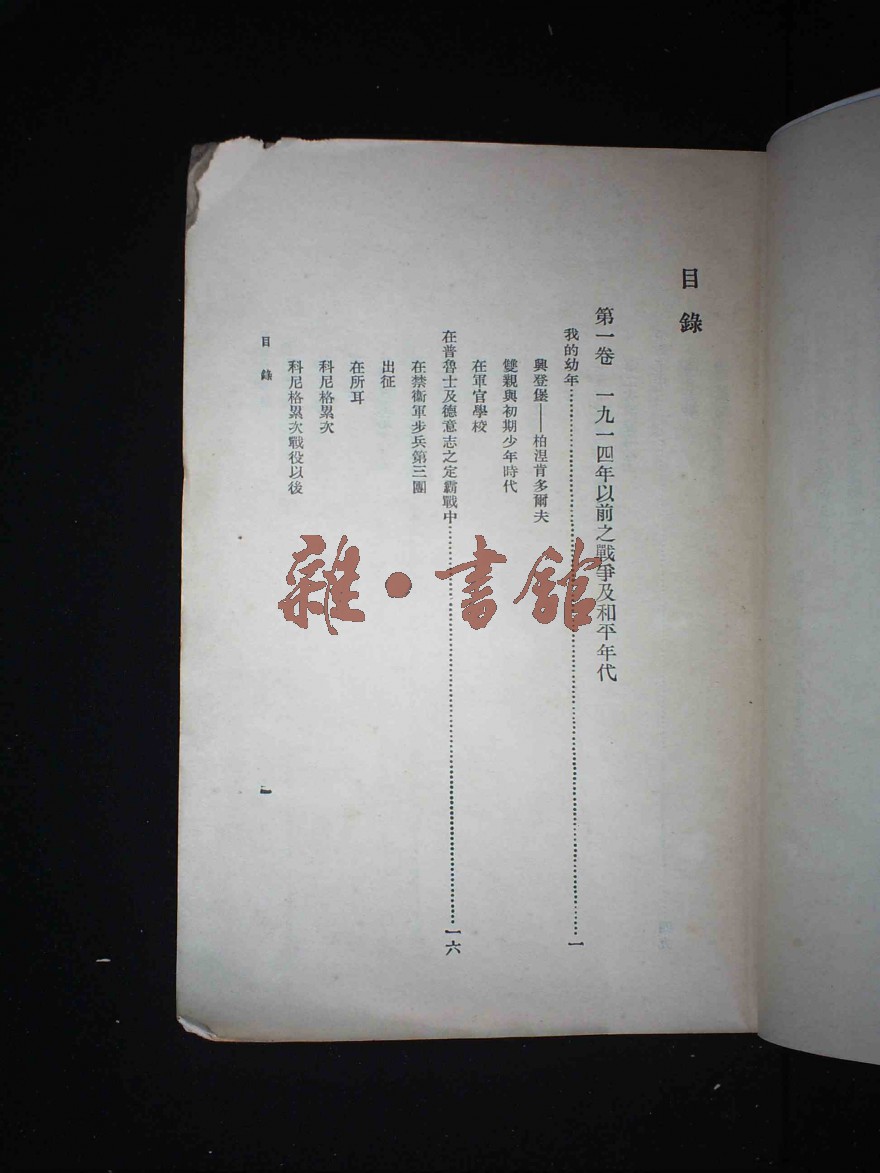 目錄
第一卷 一九一四年以前之戰爭及和平年代
我的幼年……一
興登堡——柏涅肯多爾夫
雙親與初期少年時代
在軍官學校
在普魯士及德意志之定霸戰中……一六
在禁衞軍步兵第三團
出征
在所耳
科尼格累次
科尼格累次戰役以後
目錄
一
雜·書館